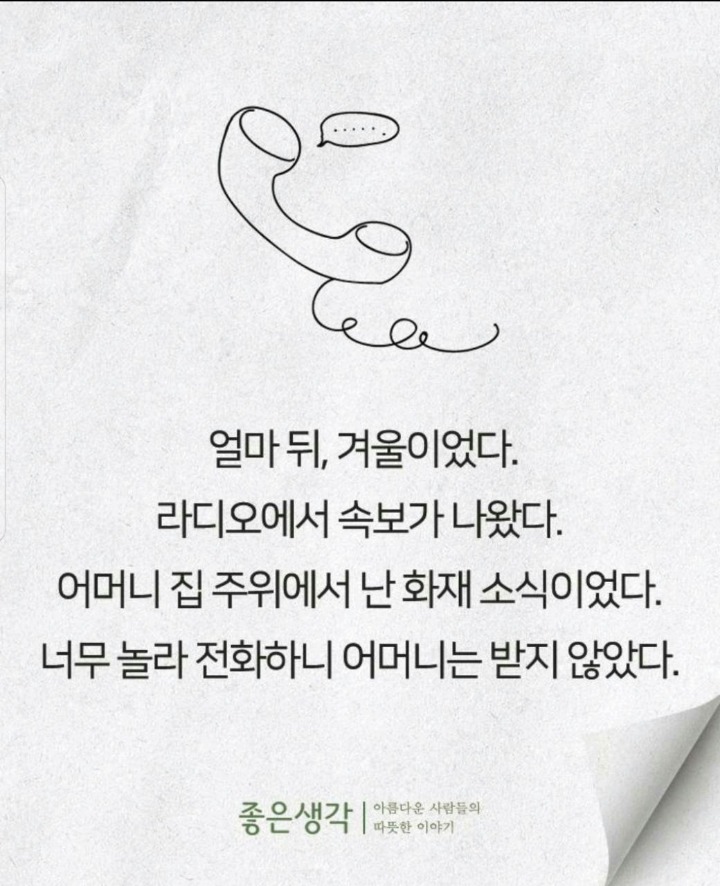 얼마 뒤, 겨울이었다.
라디오에서 속보가 나왔다.
어머니 집 주위에서 난 화재 소식이었다.
너무 놀라 전화하니 어머니는 받지 않았다.
좋은생각 | 아름다운 사람들의
따뜻한 이야기